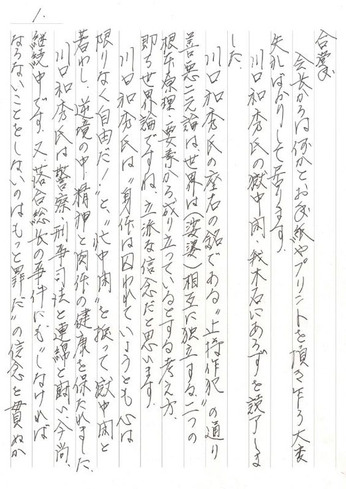 1.
合掌
会長からは何かとお手紙やプリントを頂き乍ら大変
失礼ばかりして居ります。
川口和秀氏の獄中閑・我木石にあらずを読了しま
した
川口和秀氏の座右の銘である"止持作犯"の通り
善悪二元論は世界は(婆娑)相互に独立する二つの
根本原理・要素から成り立っているとする考え方、
即ち世界論ですね。立派な信念だと思います。
川口和秀氏は"身体は囚われていようとも心は
限りなく自由だ!"と"獄中閑"を抵って獄中閑と
著わし、逆境の中、精神と肉体の健康を保たれました。
川口和秀氏は警察・刑事司法と連綿と闘い今尚、
継続中です。又落合総長の事件にも"しなければ
ならないことをしないのはもっと罪だ"の信念を貫ぬか